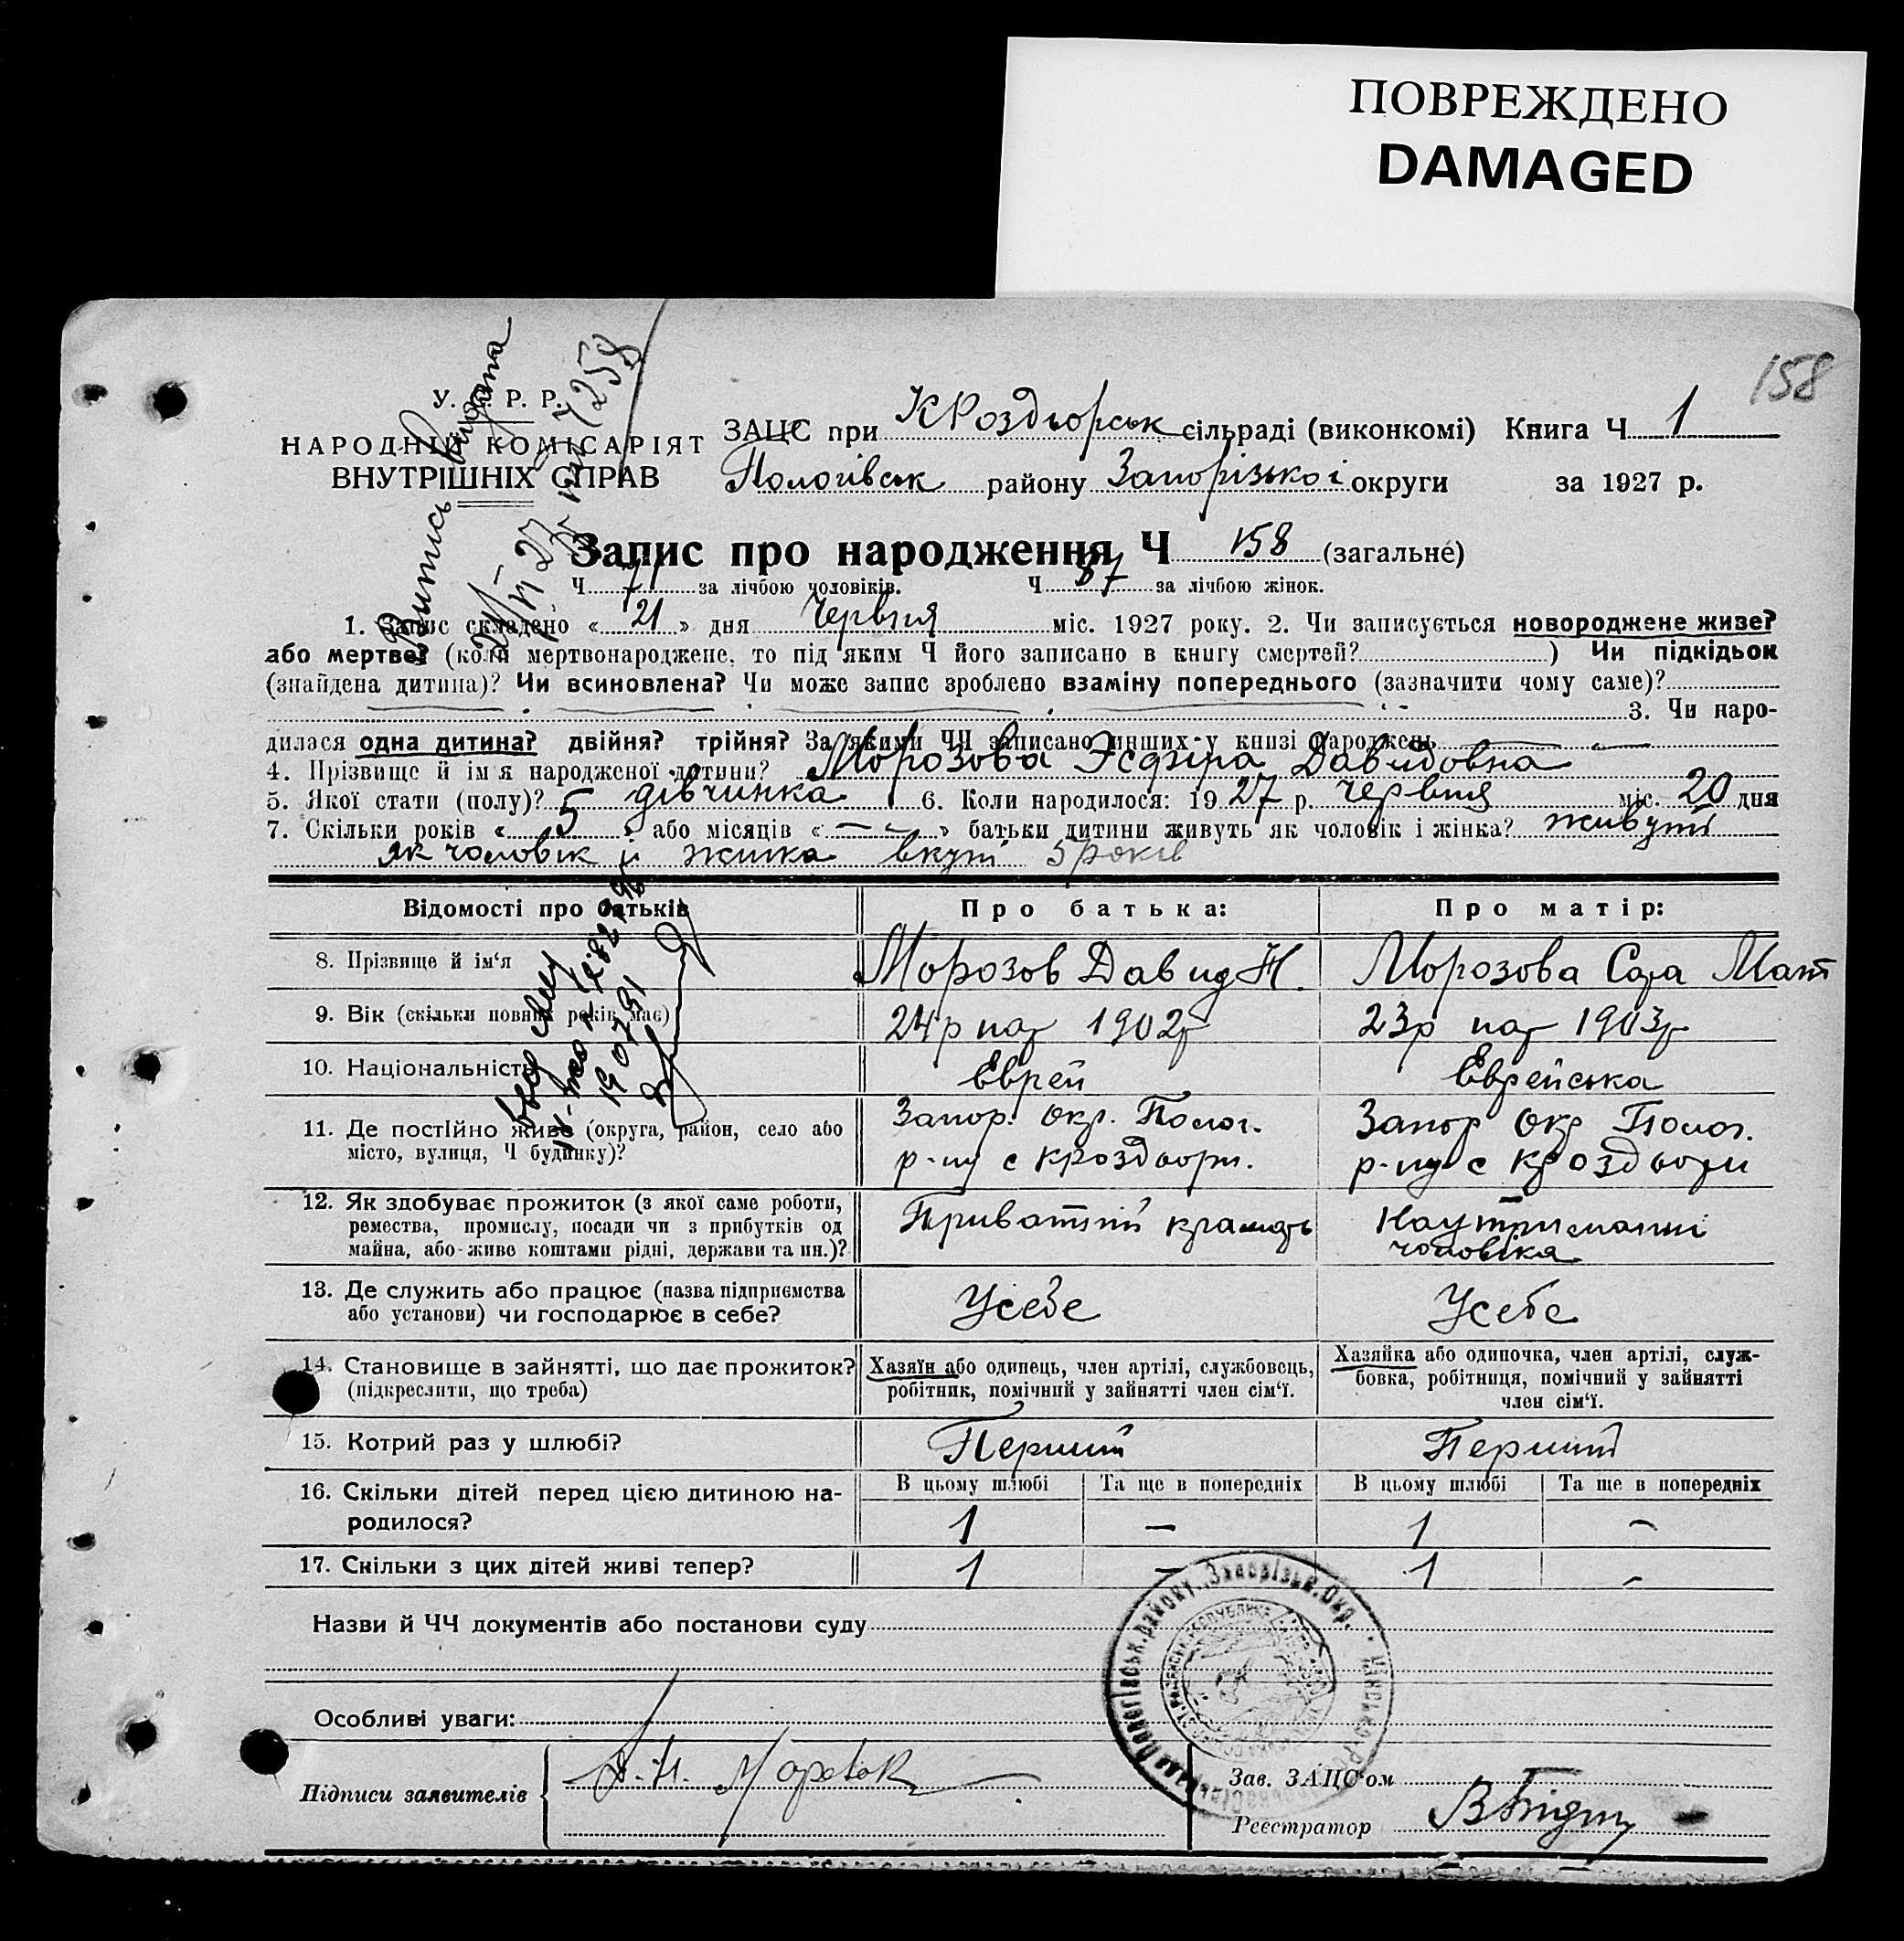 ПОВРЕЖДЕНО
DAMAGED
158
У. Р. Р.
НАРОДНІЙ КОМІСАРІЯТ
ВНУТРІШНІХ СПРАВ
Випись видана
ЗАЦС при КРоздорськ сільраді (виконкомі) Книга Ч 1
Пологівськ району Запорізької округи за 1927 р.
Запис про народження Ч 158 (загальне)
Ч 71 за лічбою чоловіків. Ч 87 за лічбою жінок.
1. Запис складено « 21 » дня Червня міс. 1927 року. 2. Чи записується новороджене живе?
або мертве? (коли мертвонароджене, то під яким Ч його записано в книгу смертей? ) Чи підкідьок
(знайдена дитина)? Чи всиновлена? Чи може запис зроблено взаміну попереднього (зазначити чому саме)?
3. Чи наро-
дилася одна дитина? двійня? трійня? За якими ЧЧ записано инших у книзі народжень
4. Прізвище й імя народженої дитини? Морозова Эсфира Давидовна
5. Якої стати (полу)? дівчинка 6. Коли народилося: 1927 р. червня міс. 20 дня
7. Скільки років « 5 » або місяців « — » батьки дитини живуть як чоловік і жінка? живуть
як чоловік й жинка вкупі 5 років
Відомості про батьків Про батька: Про матір:
8. Прізвище й ім‘я Морозов Давид Н. Морозова Сара Мат
9. Вік (скільки повних років має) 24р нар 1902р 23р нар 1903р
10. Національність Еврей Еврейська
11. Де постійно живе (округа, район, село або Запор. окр. Полог. Запор Окр Полог.
місто, вулиця, Ч будинку)? р-ну с Кроздори. р-ну с Кроздори
12. Як здобуває прожиток (з якої саме роботи, Приватній крамарь На утриманні
ремества, промислу, посади чи з прибутків од чоловіка
майна, або живе коштами рідні, держави та ин.)?
13. Де служить або працює (назва підприємства Усебе Усебе
або установи) чи господарює в себе?
14. Становище в зайнятті, що дає прожиток? Хазяїн або одинець, член артілі, службовець, Хазяйка або одиночка, член артілі, служ-
(підкреслити, що треба) робітник, помічний у зайнятті член сім‘ї. бовка, робітниця, помічний у зайнятті
член сім‘ї.
15. Котрий раз у шлюбі? Перший Перший
16. Скільки дітей перед цією дитиною на- В цьому шлюбі Та ще в попередніх В цьому шлюбі Та ще в попередніх
родилося? 1 — 1 —
17. Скільки з цих дітей живі тепер? 1 — 1 —
Назви й ЧЧ документів або постанови суду
Особливі уваги:
Підписи заявителів
Зав. ЗАЦС‘ом
Реєстратор